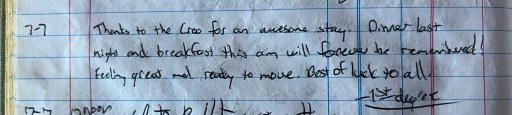 7-7 Thanks to the Croo for an awesome stay. Dinner last
night and breakfast this am will forever be remembered!
Feeling great and ready to move. Best of luck to all!
-1st degree
7-7 noon